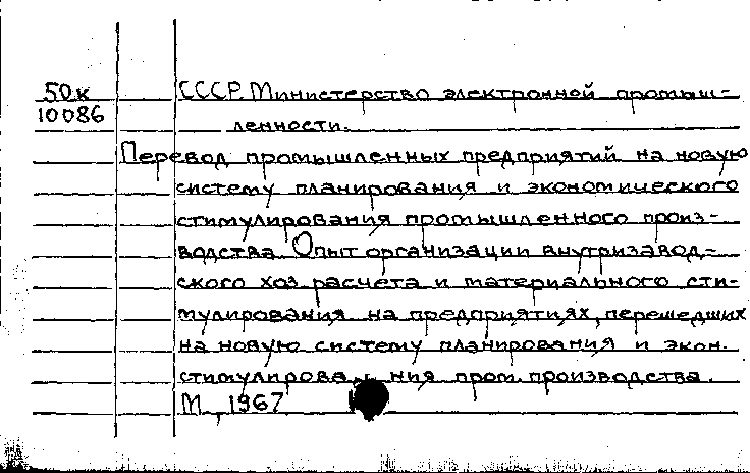 50к СССР. Министерство электронной промыш-
10086 ленности.
Перевод промышленных предприятий на новую
систему планирования и экономического
стимулирования промышленного произ-
водства. Опыт организации внутризавод-
ского хоз. расчета и материального сти-
мулирования на предприятиях, перешедших
на новую систему планирования и экон.
стимулирова ния пром. производства.
М., 1967